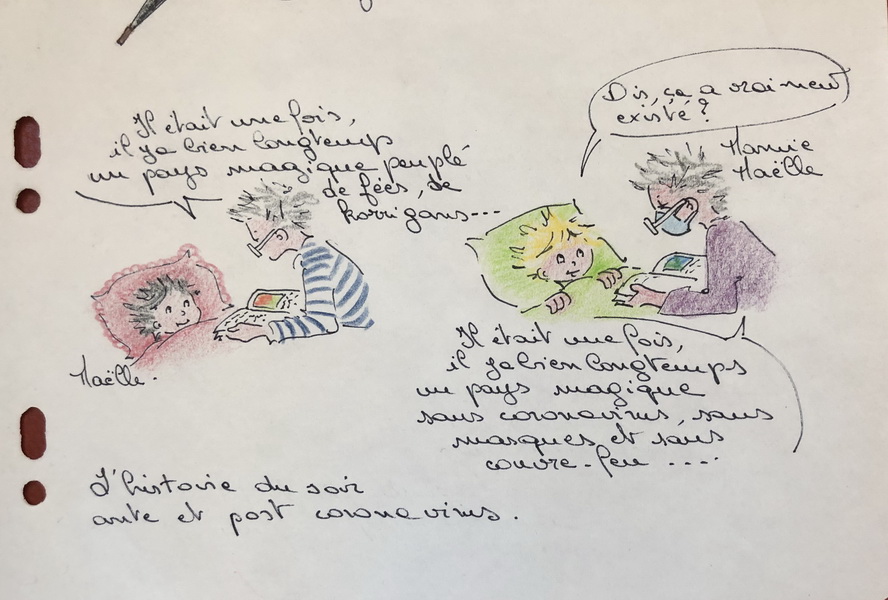 Il était une fois,
il y a bien longtemps
un pays magique peuplé
de fées, de
korrigans---
Maëlle.
Dis, ça a vraiment
existé ?
Mamie
Maëlle
Il était une fois,
il y a bien longtemps
un pays magique
sans coronavirus, sans
masques et sans
couvre-feu ....
L'histoire du soir
ante et post coronavirus.